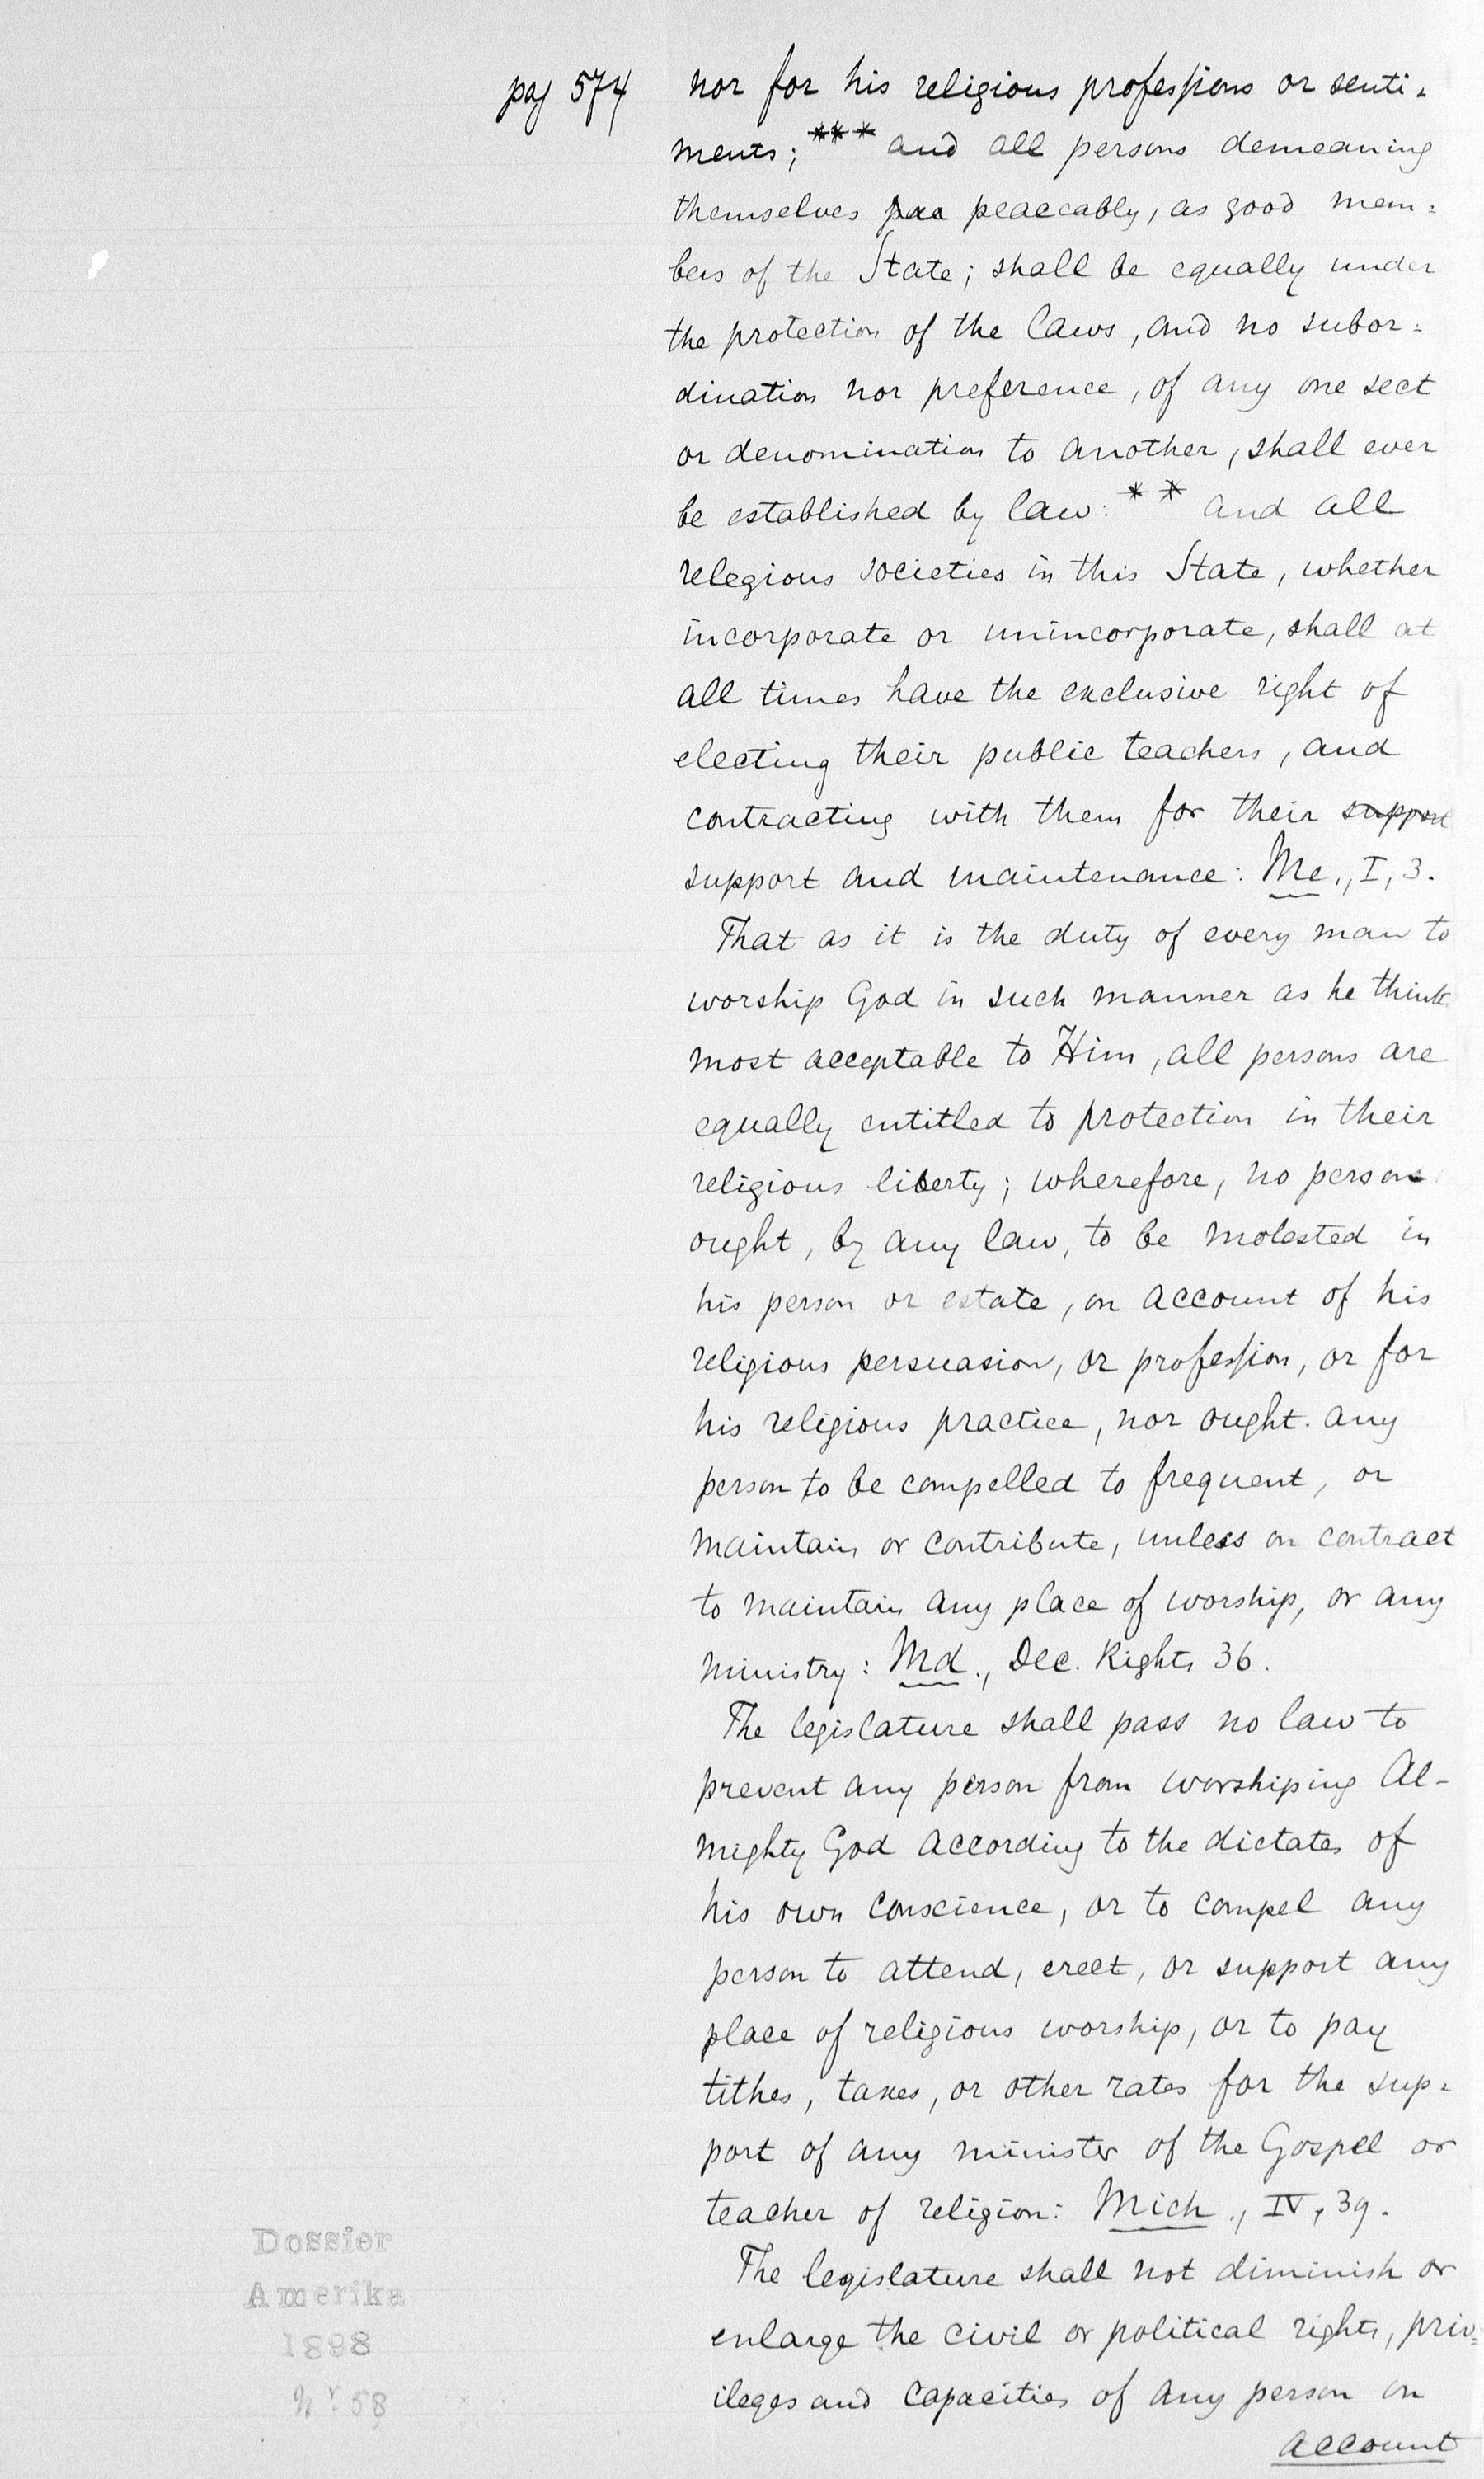 pag 574
nor for his religious professions or senti-
ments; *** and all persons demeaning
themselves pea peaceably, as good mem-
bers of the State; shall be equally under
the protection of the laws, and no subor-
dination nor preference, of any one sect
or denomination to another, shall ever
be established by law: ** and all
relegious societies in this State, whether
incorporate or unincorporate, shall at
all times have the exclusive right of
electing their public teachers, and
contracting with them for their support
support and maintenance: Me., I, 3.
That as it is the duty of every man to
worship God in such manner as he think
most acceptable to Him, all persons are
equally entitled to protection in their
religious liberty; wherefore, no person
ought, by any law, to be molested in
his person or estate, on account of his
religious persuasion, or profession, or for
his religious practice, nor ought. any
person to be compelled to frequent, or
maintain or contribute, unless on contract
to maintain any place of worship, or any
ministry: Md., Dec. Rights 36.
The legislature shall pass no law to
prevent any person from worshiping Al-
mighty God according to the dictates of
his own conscience, or to compel any
person to attend, erect, or support any
place of religious worship, or to pay
tithes, taxes, or other rates for the sup-
port of any minister of the Gospel or
teacher of religion: Mich., IV, 39.
The legislature shall not diminish or
enlarge the civil or political rights, priv-
ileges and capacities of any person on
account
Dossier
Amerika
1898
Nr 58